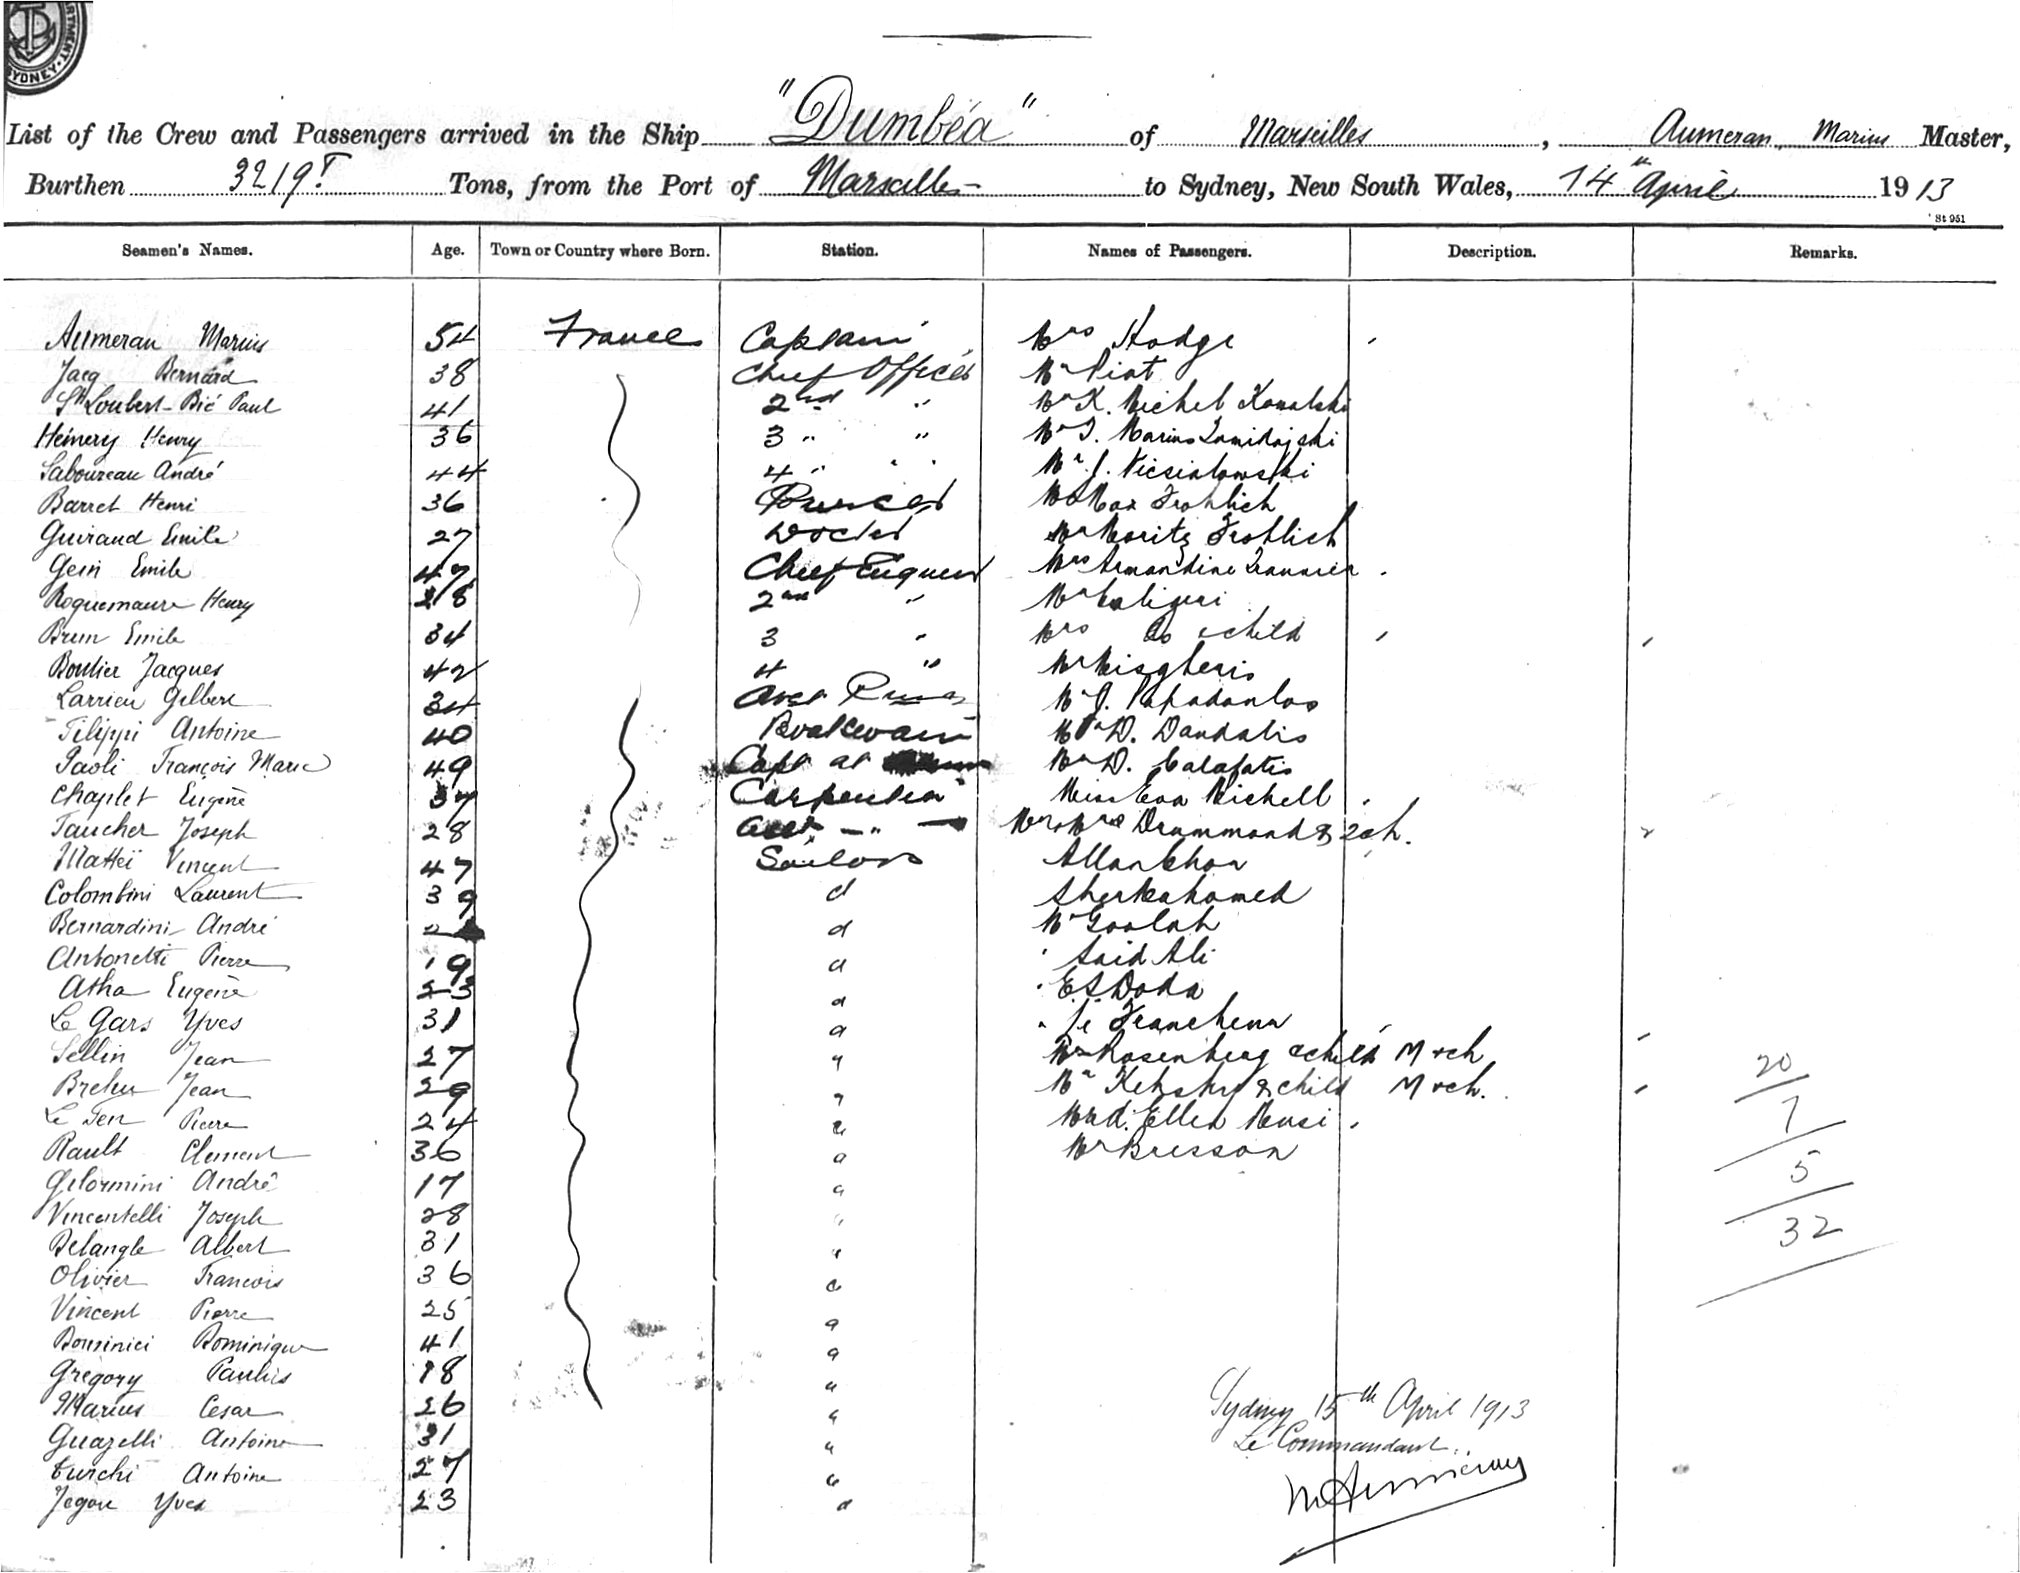 DEPARTMENT · SYDNEY ·
List of the Crew and Passengers arrived in the Ship "Dumbéa" of Marseilles, Aumeran Marius Master,
Burthen 3219 T Tons, from the Port of Marseilles to Sydney, New South Wales, 14th April 1913
St 951
Seamen's Names. Age. Town or Country where Born. Station. Names of Passengers. Description. Remarks.
Aumeran Marius 54 France Captain Mrs Hodge
Jacq Bernard 38 Chief Officer Mr Piat
St Loubert-Bié Paul 41 2nd " Mr K. Michel Kowalski
Hémery Henry 36 3 " " Mr J. Marius
Saboureau André 44 4 " " Mr J.
Barret Henri 36 Purser Mr Max Frohlich
Guiraud Emile 27 Doctor Mr Moritz Frohlich
Gein Emile 47 Chief Engineer Mrs Armandine
Roquemaure Henry 28 2nd " Mr Caligeri
Brun Emile 34 3 " Mrs Do & child
Boulier Jacques 42 4 " Mr Misgheris
Larrieu Gilbert 34 Asst Purser Mr J. Papadoulos
Filippi Antoine 40 Boatswain Mr D. Dandalis
Paoli François Marie 49 Capt at Mr D. Calafatis
Chaplet Eugène 37 Carpenter Miss Eva Michell
Faucher Joseph 28 Asst. — " — Mr & Mrs Drummond & 2 ch.
Matteï Vincent 47 Sailors Allan Khan
Colombini Laurent 39 d Sherkahomed
Bernardini André d Mr Goolah
Antonetti Pierre 19 d " Said Ali
Atha Eugène 23 d " E.S. Doda
Le Gars Yves 31 d "
Sellin Jean 27 " Mr Rosenberg & child M & ch
Brehu Jean 29 " Mr & child M & ch. 20
Le Fen Pierre 24 " Mad. Ellen Musi 7
Rault Clement 36 " Mr Bresson
Gilormini André 17 " 5
Vincentelli Joseph 28 "
Delangle Albert 31 " 32
Olivier Francois 36 "
Vincent Pierre 25 "
Dominici Dominique 41 "
Gregory Paulus 18 "
Marius Cesar 26 "
Guazelli Antoine 31 "
Turchi Antoine 27 "
Jegou Yves 23 "
Sydney 15th April 1913
Le Commandant
M Aumeran